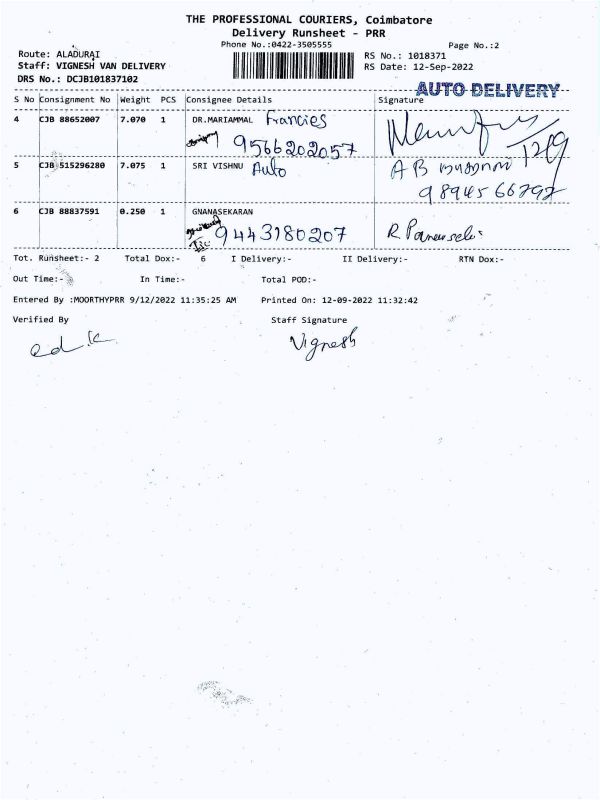 THE PROFESSIONAL COURIERS, Coimbatore
Delivery Runsheet - PRR
Phone No.:0422-3505555
Page No.:2
Route: ALADURAI
RS No.: 1018371
Staff: VIGNESH VAN DELIVERY
RS Date: 12-Sep-2022
DRS No.: DCJB101837102
AUTO DELIVERY
S No Consignment No Weight PCS Consignee Details Signature
4 CJB 88652007 7.070 1 DR.MARIAMMAL Francies
9566202057 12/9
5 CJB 515296280 7.075 1 SRI VISHNU Auto A B
9894566797
6 CJB 88837591 0.250 1 GNANASEKARAN
9443180207 R.
Tot. Runsheet:- 2 Total Dox:- 6 I Delivery:- II Delivery:- RTN Dox:-
Out Time:- In Time:- Total POD:-
Entered By :MOORTHYPRR 9/12/2022 11:35:25 AM Printed On: 12-09-2022 11:32:42
Verified By Staff Signature
Vignesh